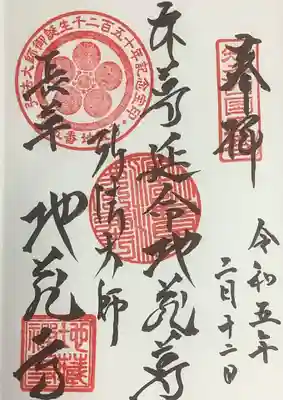 奉拝
令和五年
二月十二日
本尊延命地蔵尊
弘法大師
長草 地蔵寺
弘法大師御誕生千二百五十年記念宝印